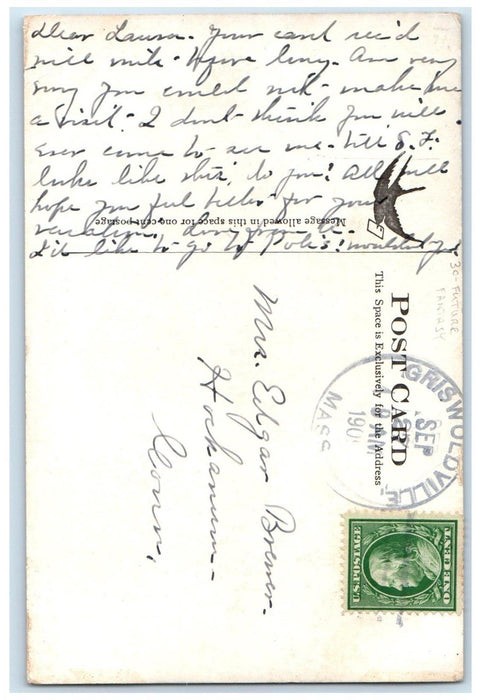 Dear Laura - Your card rec'd
will write before long. Am very
sorry you could not make me
a visit - I don't think you will
ever come to see me till S. F.
looks like this, do you? All well
hope you feel better for your
vacation,
I'd like to go to Polis! wouldn't you
Message allowed in this space for one cent postage
POST CARD
This Space is Exclusively for the Address
30-FUTURE
FANTASY
GRISWOLDVILLE
SEP
AM
190
MASS
U.S. POSTAGE
Mrs. Edgar Brewer.
Hockanum -
Conn,